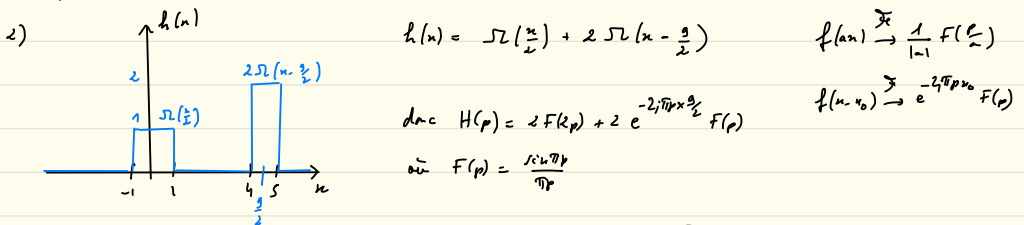 2)
h(x)
2
2Ω(x-9/2)
1 Ω(x/2)
-1 1 4 5 x
9/2
h(x) = Ω(x/2) + 2 Ω(x - 9/2)
donc H(p) = 2F(2p) + 2 e^{-2iπp×9/2} F(p)
où F(p) = sin πp / πp
f(ax) →^ℱ 1/|a| F(p/a)
f(x-x₀) →^ℱ e^{-2iπpx₀} F(p)